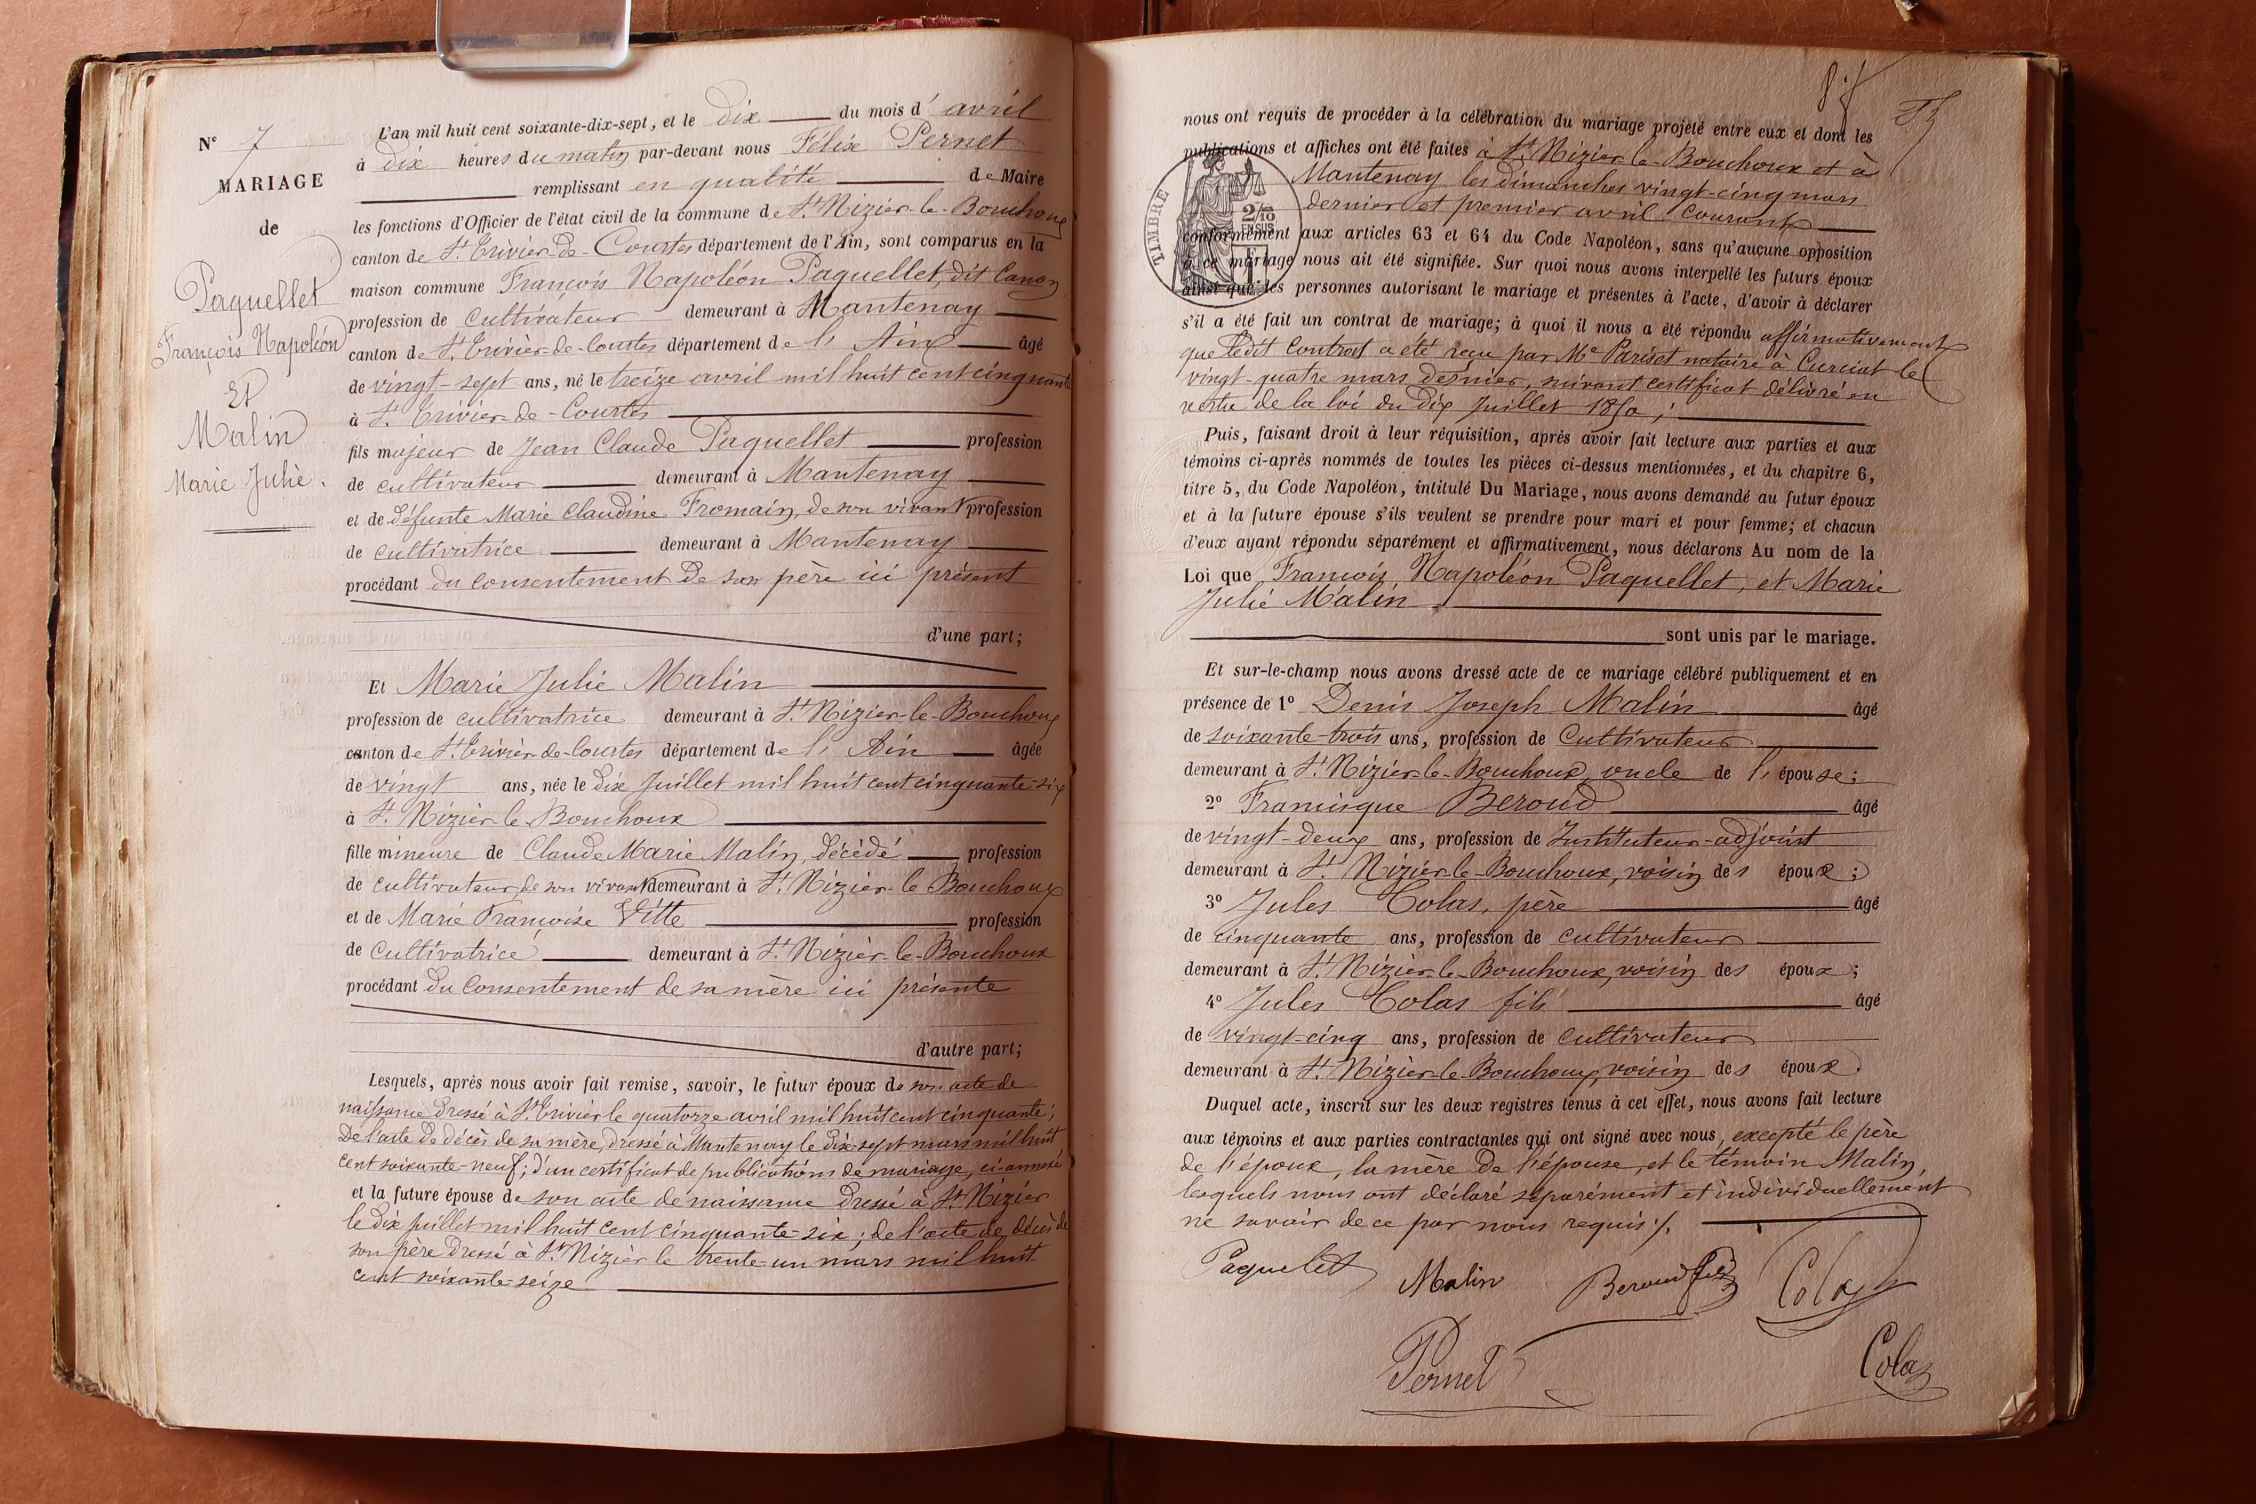 N° 7
MARIAGE
de
Paquellet
François Napoléon
Et
Malin
Marie Julie.
L'an mil huit cent soixante-dix-sept, et le dix du mois d'avril
à dix heures du matin par-devant nous Félix Pernet
remplissant en qualité de Maire
les fonctions d'Officier de l'état civil de la commune de St Nizier-le-Bouchoux
canton de St. Trivier-de-Courtes département de l'Ain, sont comparus en la
maison commune François Napoléon Paquellet, dit Canon
profession de cultivateur demeurant à Mantenay
canton de St. Trivier-de-Courtes département de l'Ain âgé
de vingt-sept ans, né le treize avril mil huit cent cinquante
à St. Trivier-de-Courtes
fils majeur de Jean Claude Paquellet profession
de cultivateur demeurant à Mantenay
et de défunte Marie Claudine Fromain, de son vivant profession
de cultivatrice demeurant à Mantenay
procédant du consentement de son père ici présent
d'une part;
Et Marie Julie Malin
profession de cultivatrice demeurant à St. Nizier-le-Bouchoux
canton de St. Trivier-de-Courtes département de l'Ain âgée
de vingt ans, née le dix Juillet mil huit cent cinquante-six
à St. Nizier-le-Bouchoux
fille mineure de Claude Marie Malin, décédé profession
de cultivateur, de son vivant demeurant à St. Nizier-le-Bouchoux
et de Marie Françoise Vitte profession
de cultivatrice demeurant à St. Nizier-le-Bouchoux
procédant du consentement de sa mère ici présente
d'autre part;
Lesquels, après nous avoir fait remise, savoir, le futur époux de son acte de
naissance dressé à St Trivier le quatorze avril mil huit cent cinquante;
De l'acte de décès de sa mère, dressé à Mantenay le dix-sept mars mil huit
cent soixante-neuf; d'un certificat de publications de mariage, ci-annexé
et la future épouse de son acte de naissance dressé à St Nizier
le dix juillet mil huit cent cinquante-six; de l'acte de décès de
son père dressé à St Nizier le trente-un mars mil huit
cent soixante-seize
nous ont requis de procéder à la célébration du mariage projeté entre eux et dont les
publications et affiches ont été faites à St. Nizier-le-Bouchoux et à
Mantenay les dimanches vingt-cinq mars
dernier et premier avril courant
TIMBRE
2/10
EN SUS
conformément aux articles 63 et 64 du Code Napoléon, sans qu'aucune opposition
à ce mariage nous ait été signifiée. Sur quoi nous avons interpellé les futurs époux
ainsi que les personnes autorisant le mariage et présentes à l'acte, d'avoir à déclarer
s'il a été fait un contrat de mariage; à quoi il nous a été répondu affirmativement
que ledit contrat a été reçu par Me Pariset notaire à Curciat le
vingt-quatre mars dernier, suivant certificat délivré en
vertu de la loi du dix Juillet 1850;
Puis, faisant droit à leur réquisition, après avoir fait lecture aux parties et aux
témoins ci-après nommés de toutes les pièces ci-dessus mentionnées, et du chapitre 6,
titre 5, du Code Napoléon, intitulé Du Mariage, nous avons demandé au futur époux
et à la future épouse s'ils veulent se prendre pour mari et pour femme; et chacun
d'eux ayant répondu séparément et affirmativement, nous déclarons Au nom de la
Loi que François Napoléon Paquellet, et Marie
Julie Malin
sont unis par le mariage.
Et sur-le-champ nous avons dressé acte de ce mariage célébré publiquement et en
présence de 1° Denis Joseph Malin âgé
de soixante-trois ans, profession de cultivateur
demeurant à St. Nizier-le-Bouchoux, oncle de l'épouse;
2° Francisque Beroud âgé
de vingt-deux ans, profession de Instituteur-adjoint
demeurant à St. Nizier-le-Bouchoux, voisin des époux;
3° Jules Colas, père âgé
de cinquante ans, profession de cultivateur
demeurant à St. Nizier-le-Bouchoux, voisin des époux;
4° Jules Colas fils âgé
de vingt-cinq ans, profession de cultivateur
demeurant à St. Nizier-le-Bouchoux, voisin des époux.
Duquel acte, inscrit sur les deux registres tenus à cet effet, nous avons fait lecture
aux témoins et aux parties contractantes qui ont signé avec nous, excepté le père
de l'époux, la mère de l'épouse, et le témoin Malin,
lesquels nous ont déclaré séparément et individuellement
ne savoir de ce par nous requis ./.
Paquelet Malin Beroud fils Colas
Pernet Colas